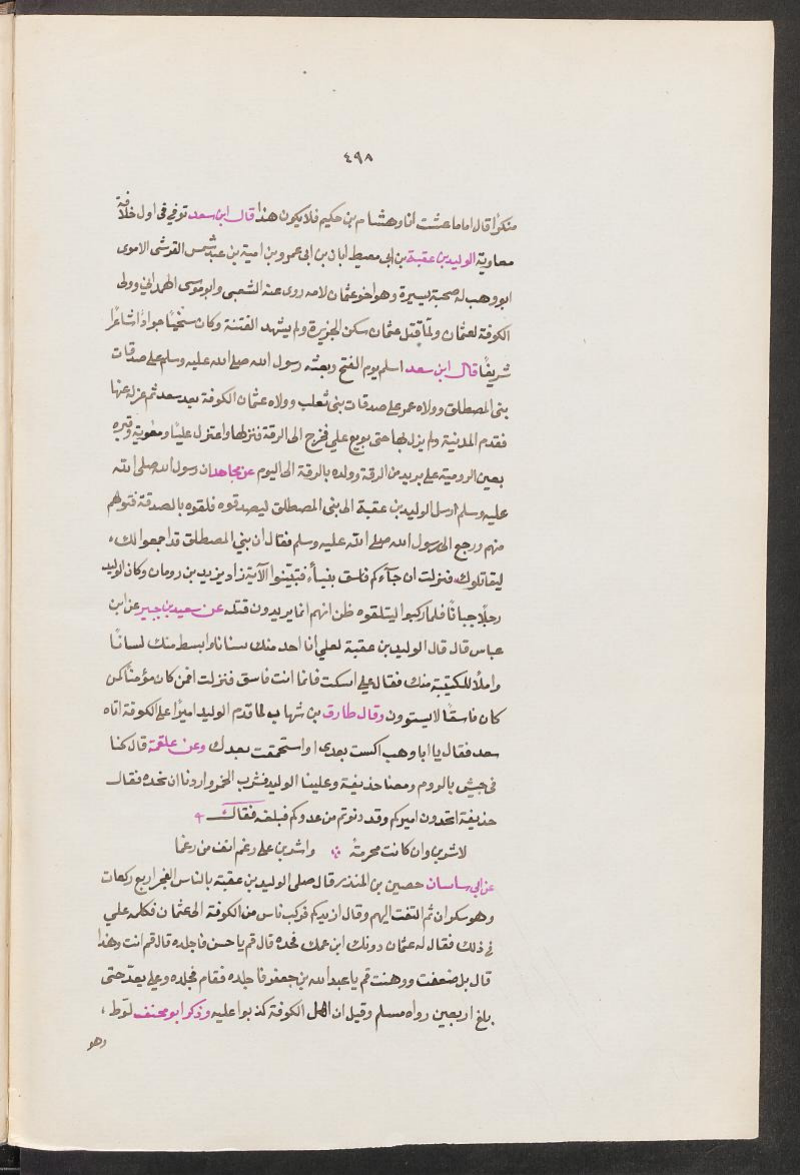 ٤٩٨
منكرا قال اما ما عشت انا وهشام بن حكيم فلا يكون هذا قال ابن سعد توفي في اول خلافة
معاوية الوليد بن عقبة بن ابي معيط ابان بن ابي عمرو بن امية بن عبد شمس القرشي الاموي
ابو وهب له صحبة يسيرة وهو اخو عثمان لامه روى عنه الشعبي وابو موسى الهمداني وولى
الكوفة لعثمان ولما قتل عثمان سكن الجزيرة ولم يشهد الفتنة وكان سخيًا جوادًا شاعرًا
شريفًا قال ابن سعد اسلم يوم الفتح وبعثه رسول الله صلى الله عليه وسلم على صدقات
بنى المصطلق وولاه عمر على صدقات بنى تغلب وولاه عثمان الكوفة بعد سعد ثم عزله عنها
فقدم المدينة ولم يزل بها حتى بويع علي فخرج الى الرقة فنزلها واعتزل عليًا ومعوية وقبره
بعين الرومية على بريد من الرقة وولده بالرقة الى اليوم عن مجاهد ان رسول الله صلى الله
عليه وسلم ارسل الوليد بن عقبة الى بنى المصطلق ليصدقوه فلقوه بالصدقة فتوهم
منهم ورجع الى رسول الله صلى الله عليه وسلم فقال ان بني المصطلق قد اجمعوا لك
ليقاتلوك فنزلت ان جآءكم فاسق بنبأ فتبيّنوا الآية زاد يزيد بن رومان وكان الوليد
رجلًا جبانًا فلما ركبوا ليتلقوه ظن انهم انما يريدون قتله عن سعيد بن جبير عن ابن
عباس قال قال الوليد بن عقبة لعلي انا احد منك سنانا وابسط منك لسانًا
واملأ للكتيبة منك فقال علي اسكت فانما انت فاسق فنزلت افمن كان مؤمنًا كمن
كان فاسقًا لا يستوون وقال طارق بن شهاب لما قدم الوليد اميرًا على الكوفة اتاه
سعد فقال يا ابا وهب اكست بعدى او استحمقت بعدك وعن علقمة قال كنا
فى جيش بالروم ومعنا حذيفة وعلينا الوليد فشرب الخمر واردنا ان نحده فقال
حذيفة اتحدون اميركم وقد دنوتم من عدوكم فبلغه فقال
لاشربن وان كانت محرمة ؞ واشربن على رغم انف من رغما
عن ابي ساسان حصين بن المنذر قال صلى الوليد بن عقبة بالناس الفجر اربع ركعات
وهو سكران ثم التفت اليهم وقال ازيدكم فركب ناس من الكوفة الى عثمان فكلمه علي
في ذلك فقال له عثمان دونك ابن عمك فحده قال قم يا حسن فاجلده قال قم انت وهذا
قال بل ضعفت ووهنت قم يا عبد الله بن جعفر فاجلده فقام فجلده وعلي يعدّ حتى
بلغ اربعين رواه مسلم وقيل ان اهل الكوفة كذبوا عليه وذكر ابو مخنف لوّط ،
وهو